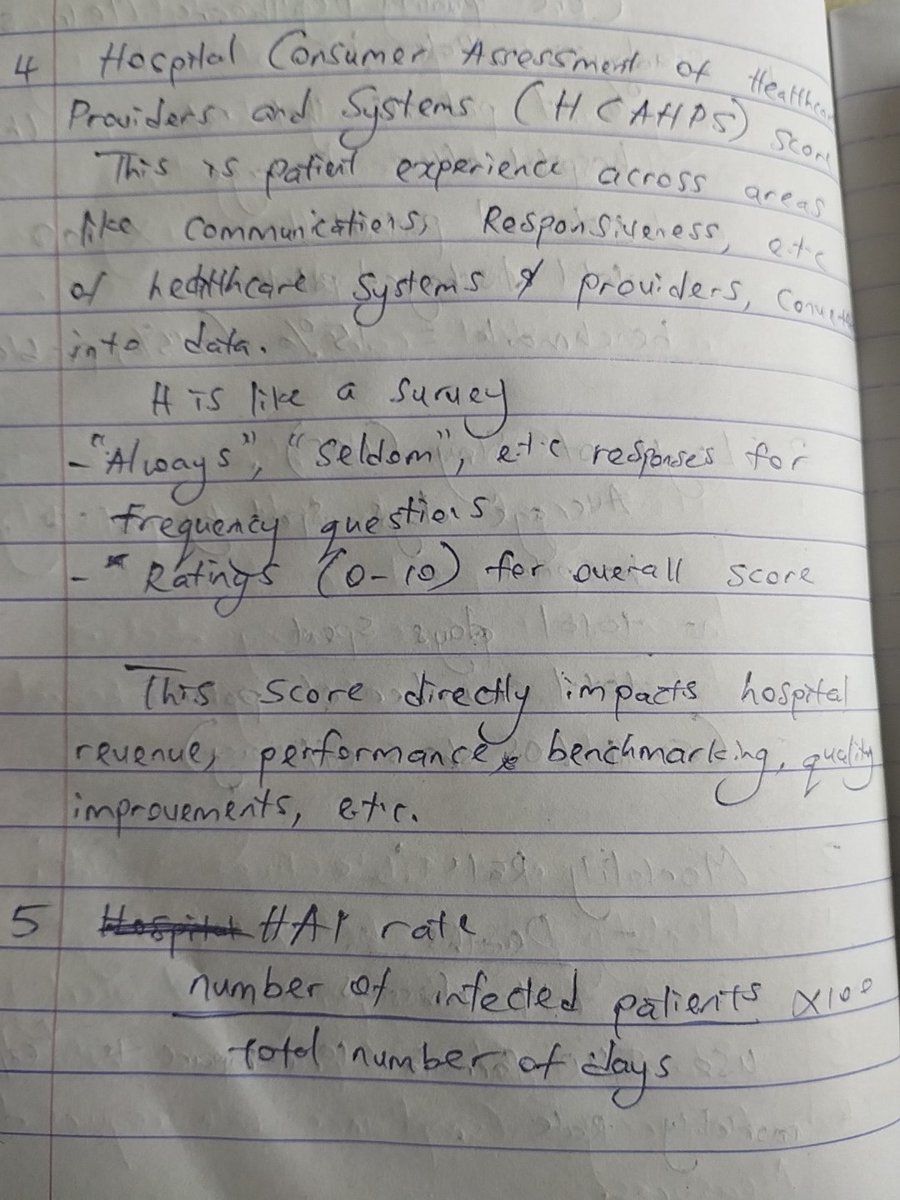 4 Hospital Consumer Assessment of Healthcare
Providers and Systems (HCAHPS) Score
This is patient experience across areas
like communications, Responsiveness, e.t.c
of healthcare systems & providers,
into data.
It is like a survey
- "Always", "Seldom", e.t.c responses for
frequency questions
- Ratings (0-10) for overall score
This score directly impacts hospital
revenue, performance, benchmarking, quality
improvements, e.t.c.
5 Hospital HAI rate
number of infected patients X100
total number of days